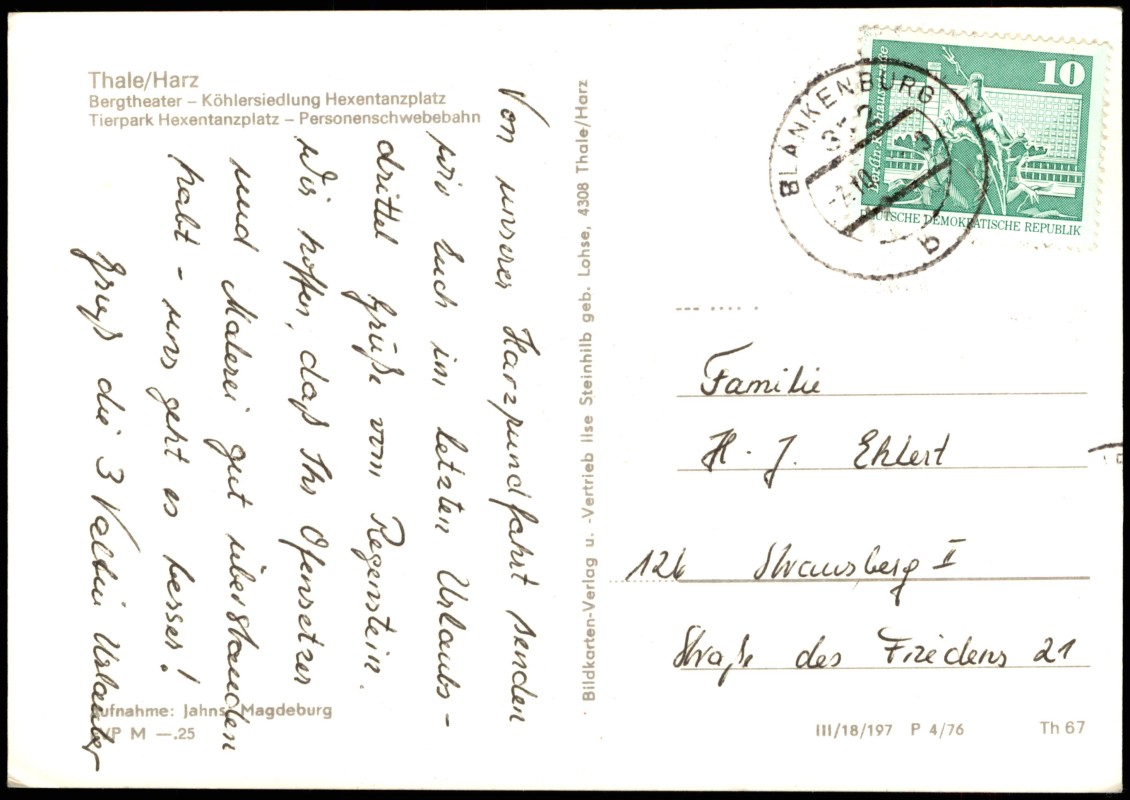 Thale/Harz
Bergtheater – Köhlersiedlung Hexentanzplatz
Tierpark Hexentanzplatz – Personenschwebebahn
Von unserer Harzrundfahrt senden
wir Euch im letzten Urlaubs-
drittel Grüße vom Regenstein.
Wir hoffen, daß Ihr Ofensetzer
und Malerei gut überstanden
habt – uns geht es besser!
Gruß die 3 Urlauber
Aufnahme: Jahns, Magdeburg
EVP M —.25
Bildkarten-Verlag u. -Vertrieb Ilse Steinhilb geb. Lohse, 4308 Thale/Harz
10
DEUTSCHE DEMOKRATISCHE REPUBLIK
BLANKENBURG
b
Familie
H. J. Ehlert
126 Strausberg II
Straße des Friedens 21
III/18/197 P 4/76 Th 67